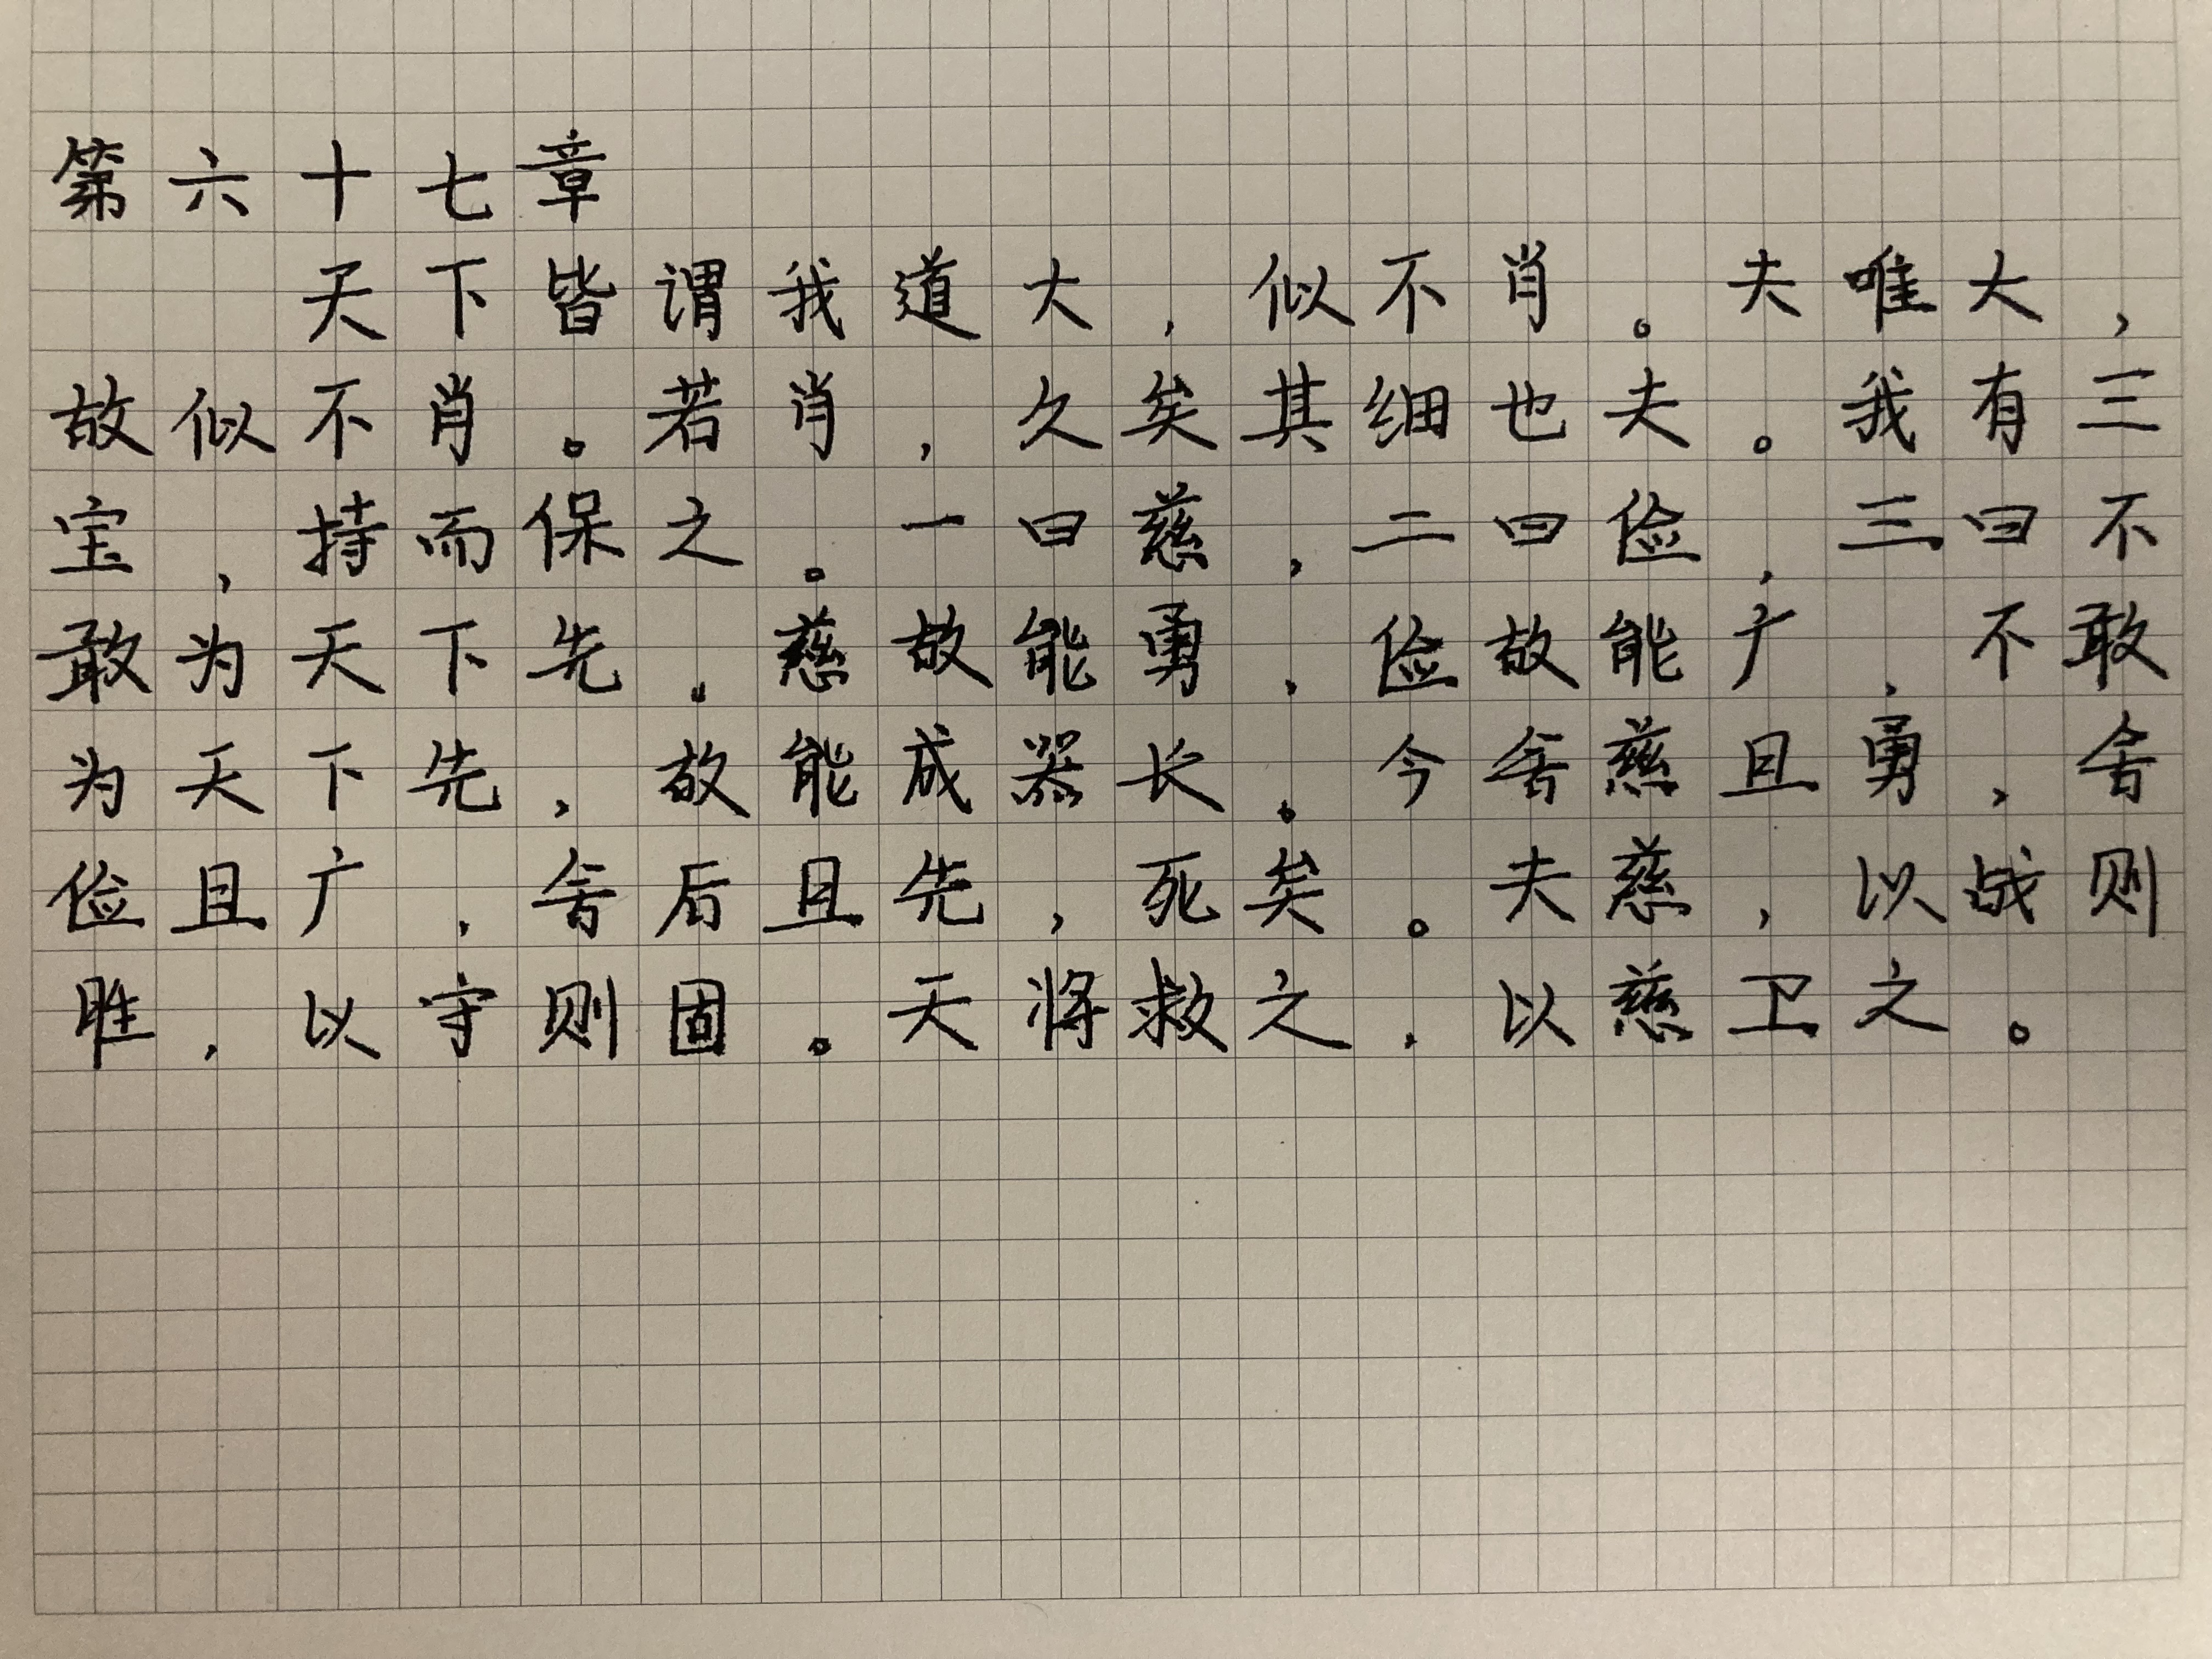 第六十七章
天下皆谓我道大，似不肖。夫唯大，
故似不肖。若肖，久矣其细也夫。我有三
宝，持而保之。一曰慈，二曰俭，三曰不
敢为天下先。慈故能勇，俭故能广，不敢
为天下先，故能成器长。今舍慈且勇，舍
俭且广，舍后且先，死矣。夫慈，以战则
胜，以守则固。天将救之，以慈卫之。